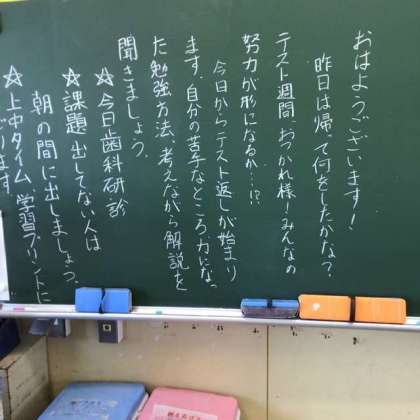 おはようございます！
昨日は帰って何をしたかな？
テスト週間、おつかれ様！みんなの
努力が形になるか…!?
今日からテスト返しが始まり
ます。自分の苦手なところ、力になっ
た勉強方法、考えながら解説を
聞きましょう。
☆今日歯科研・診
☆課題出してない人は
朝の間に出しましょう。
☆上中タイム、学習プリントに
ります